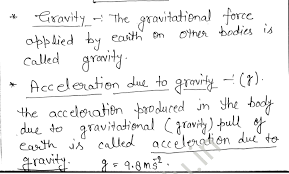 * Gravity :- The gravitational force
applied by earth on other bodies is
called gravity.
* Acceleration due to gravity :- (g).
The acceleration produced in the body
due to gravitational (gravity) pull of
earth is called acceleration due to
gravity. g = 9.8 ms⁻².